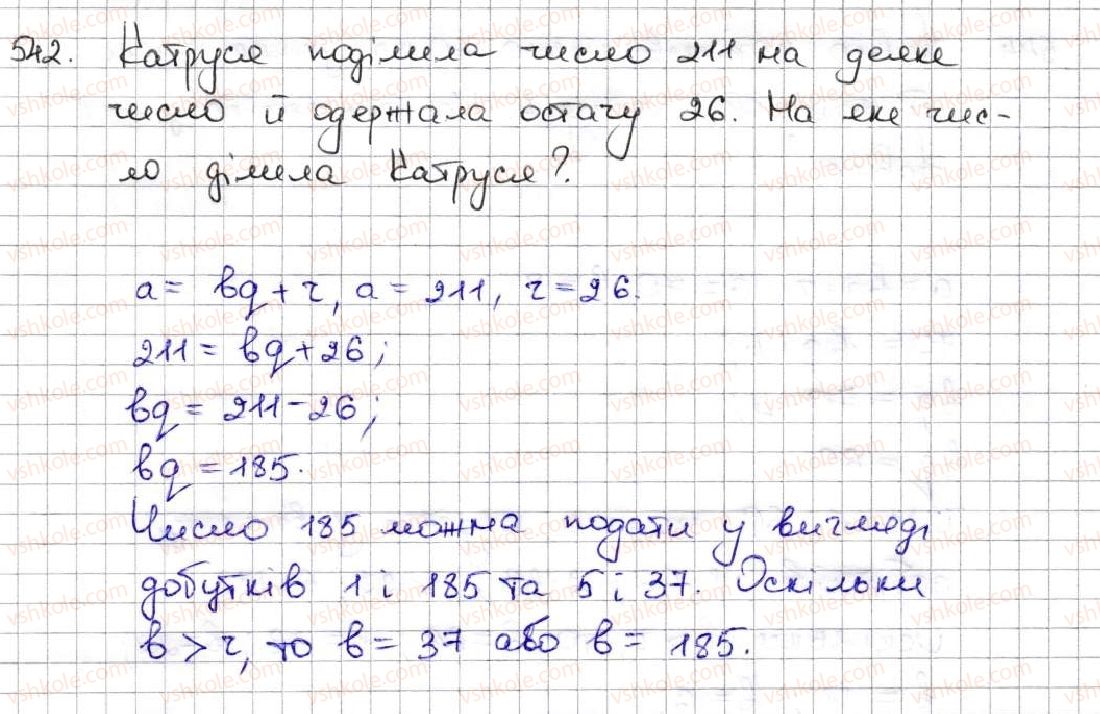 542. Катруся поділила число 211 на деяке
число й одержала остачу 26. На яке чис-
ло ділила Катруся?
a = bq + r, a = 211, r = 26.
211 = bq + 26;
bq = 211 - 26;
bq = 185.
Число 185 можна подати у вигляді
добутків 1 і 185 та 5 і 37. Оскільки
b > r, то b = 37 або b = 185.